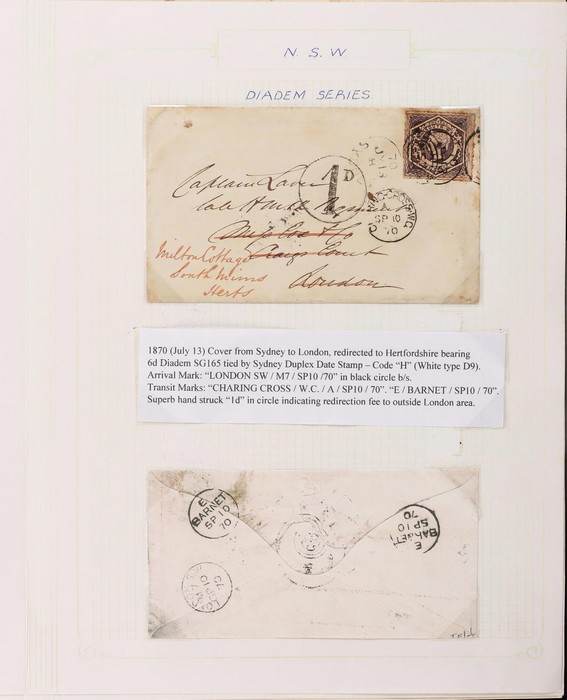 N. S. W
DIADEM SERIES
1D
JY 13
70
H
CHARING-CROSS-W.C
A
SP 10
70
Captain
late H M
London
Milton Cottage
South Mims
Herts
1870 (July 13) Cover from Sydney to London, redirected to Hertfordshire bearing
6d Diadem SG165 tied by Sydney Duplex Date Stamp – Code “H” (White type D9).
Arrival Mark: “LONDON SW / M7 / SP10 /70” in black circle b/s.
Transit Marks: “CHARING CROSS / W.C. / A / SP10 / 70”. “E / BARNET / SP10 / 70”.
Superb hand struck “1d” in circle indicating redirection fee to outside London area.
E
BARNET
SP 10
70
E
BARNET
SP 10
70
SP 10
70